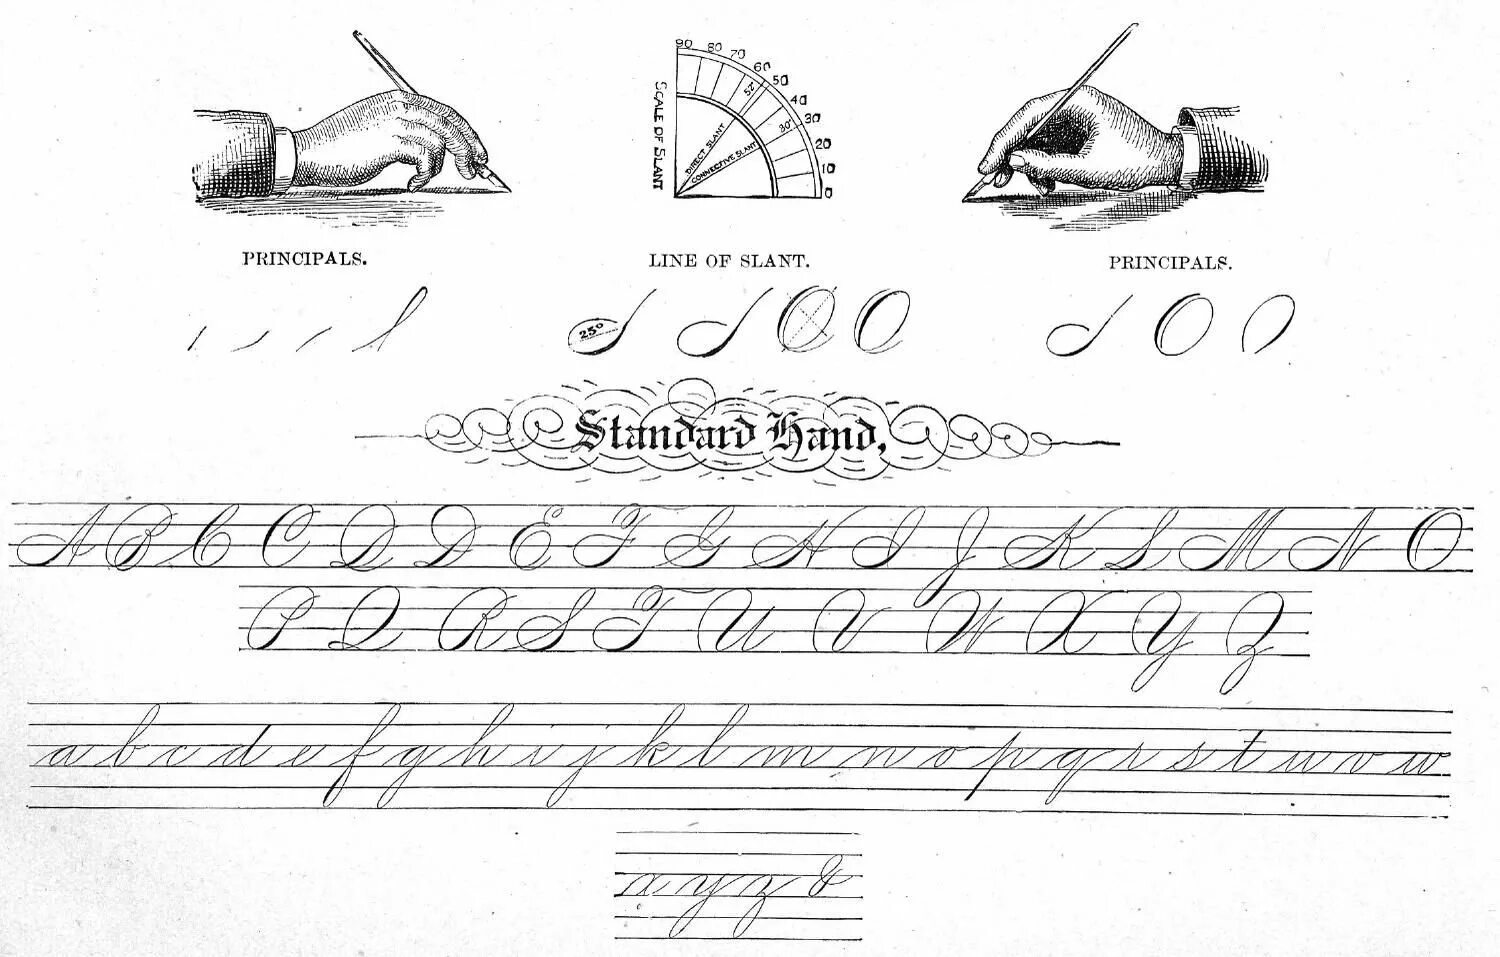 90 80 70 60 50 40 30 20 10 0
52° 30°
SCALE OF SLANT
DIRECT SLANT
CONNECTIVE SLANT
PRINCIPALS. LINE OF SLANT. PRINCIPALS.
25°
Standard Hand,
A B C C D D E F G H I J K L M N O
P Q R S T U V W X Y Z
a b c d e f g h i j k l m n o p q r s t u v w
x y z &